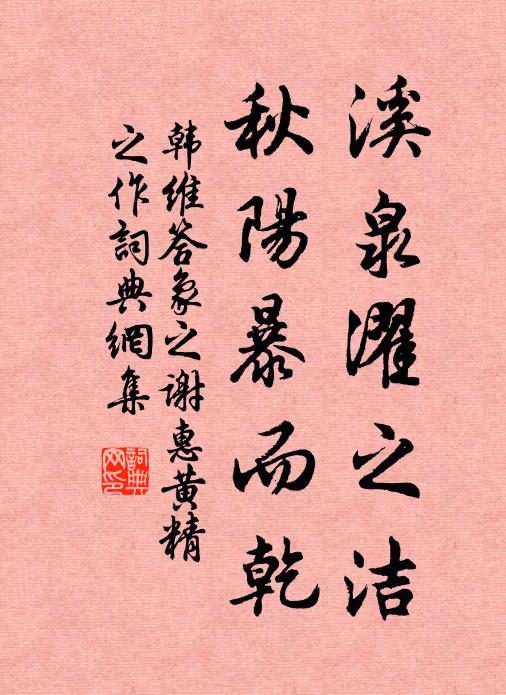 溪泉濯之洁
秋陽暴而乾
韩维答象之谢惠黄精
之作詞典網集
詞典网印